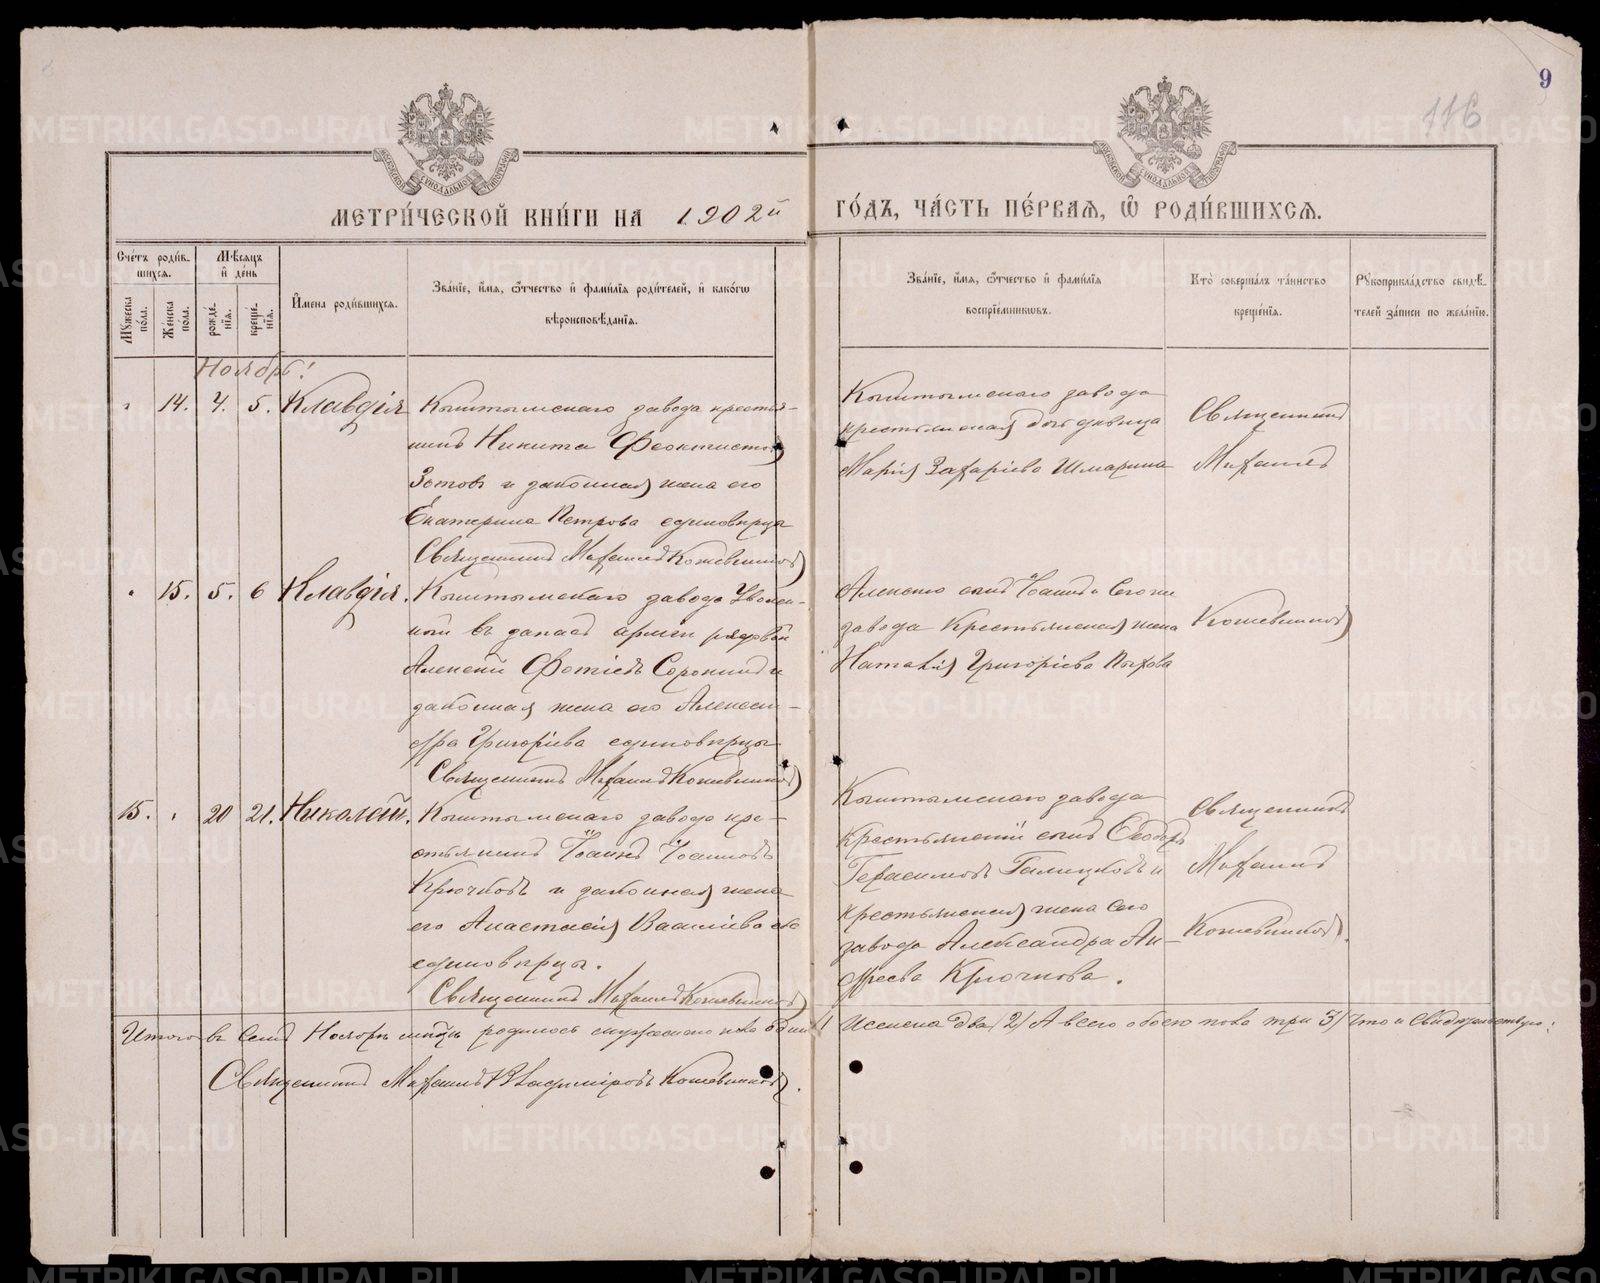 9
116
МЕТРИ́ЧЕСКОЙ КНИ́ГИ НА 1902й ГО́ДЪ, ЧА́СТЬ ПЕ́РВАЯ, Ѽ РОДИ́ВШИХСЯ.
Сче́тъ роди́в-
шихся.
Мѣ́сяцъ
и҆ де́нь
Мꙋ́жеска по́ла.
Же́нска по́ла.
рожде́-
нїѧ.
креще́-
нїѧ.
И҆мена роди́вшихся.
Зва́нїе, и҆́мѧ, ѻ҆́тчество и҆ фами́лїѧ роди́телей, и҆ како́гѡ
вѣроисповѣ́данїѧ.
Зва́нїе, и҆́мѧ, ѻ҆́тчество и҆ фами́лїѧ
воспрїе́мникѡвъ.
Кто̀ соверша́лъ та́инство
креще́нїѧ.
Рꙋкоприкла́дство свидѣ́-
телей за́писи по жела́нїю.
Ноябрь!
14. 4. 5. Клавдія
Кыштымскаго завода крестья-
нинъ Никита Феоктистовъ
Зотовъ и законная жена его
Екатерина Петрова единовѣрцы
Священникъ Михаилъ Кожевниковъ
Кыштымскаго завода
крестьянская дочь дѣвица
Марія Захаріева Шмарина
Священникъ
Михаилъ
15. 5. 6 Клавдія.
Кыштымскаго завода Уволен-
ный въ запасъ арміи рядовой
Алексѣй Фотіевъ Сорокинъ и
законная жена его Алексан-
дра Григоріева единовѣрцы
Священникъ Михаилъ Кожевниковъ
завода Крестьянская жена
Наталія Григоріева Пыхова
Кожевниковъ
15. 20 21. Николай.
Кыштымскаго завода кре-
стьянинъ Іоаннъ Іоанновъ
Крючковъ и законная жена
его Анастасія Василіева оба
единовѣрцы.
Священникъ Михаилъ Кожевниковъ
Кыштымскаго завода
Крестьянскій сынъ Ѳеодоръ
Герасимовъ Галицковъ и
крестьянская жена сего
завода Александра Ан-
дреева Крючкова.
Священникъ
Михаилъ
Кожевниковъ.
Итого въ семъ Ноябрѣ мѣсяцѣ родилось мужескаго пола одинъ 1/ Женска два/ 2/ А всего обоего пола три 3/ Что и свидѣтельствую:
Священникъ Михаилъ Владиміровъ Кожевниковъ.